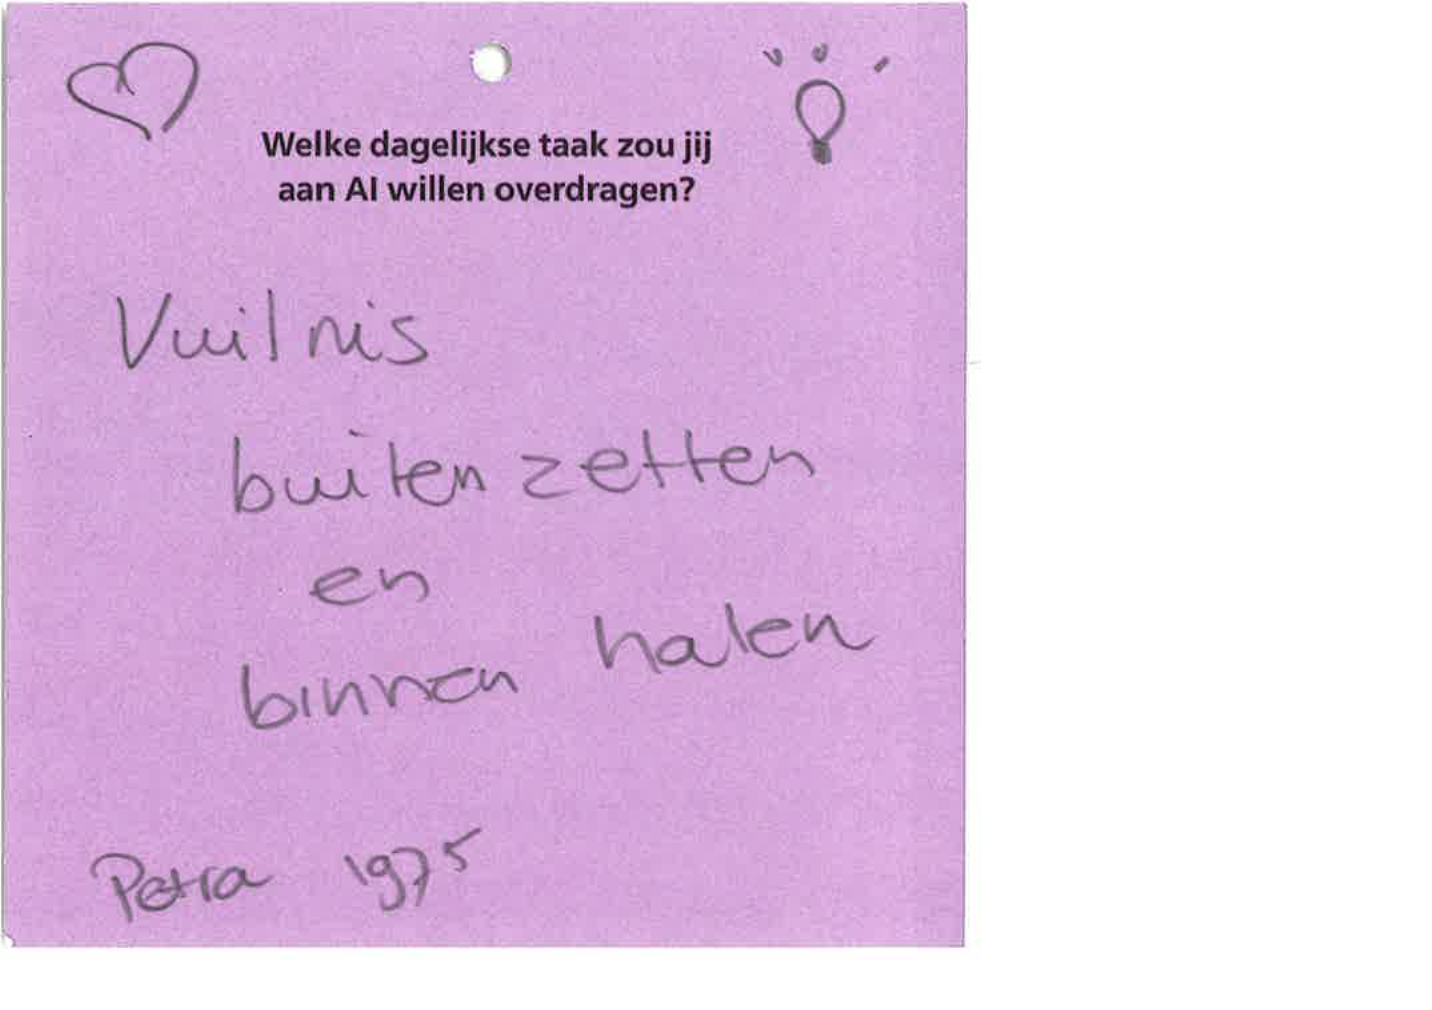 Welke dagelijkse taak zou jij
aan AI willen overdragen?
Vuilnis
buiten zetten
en
binnen halen
Petra 1975